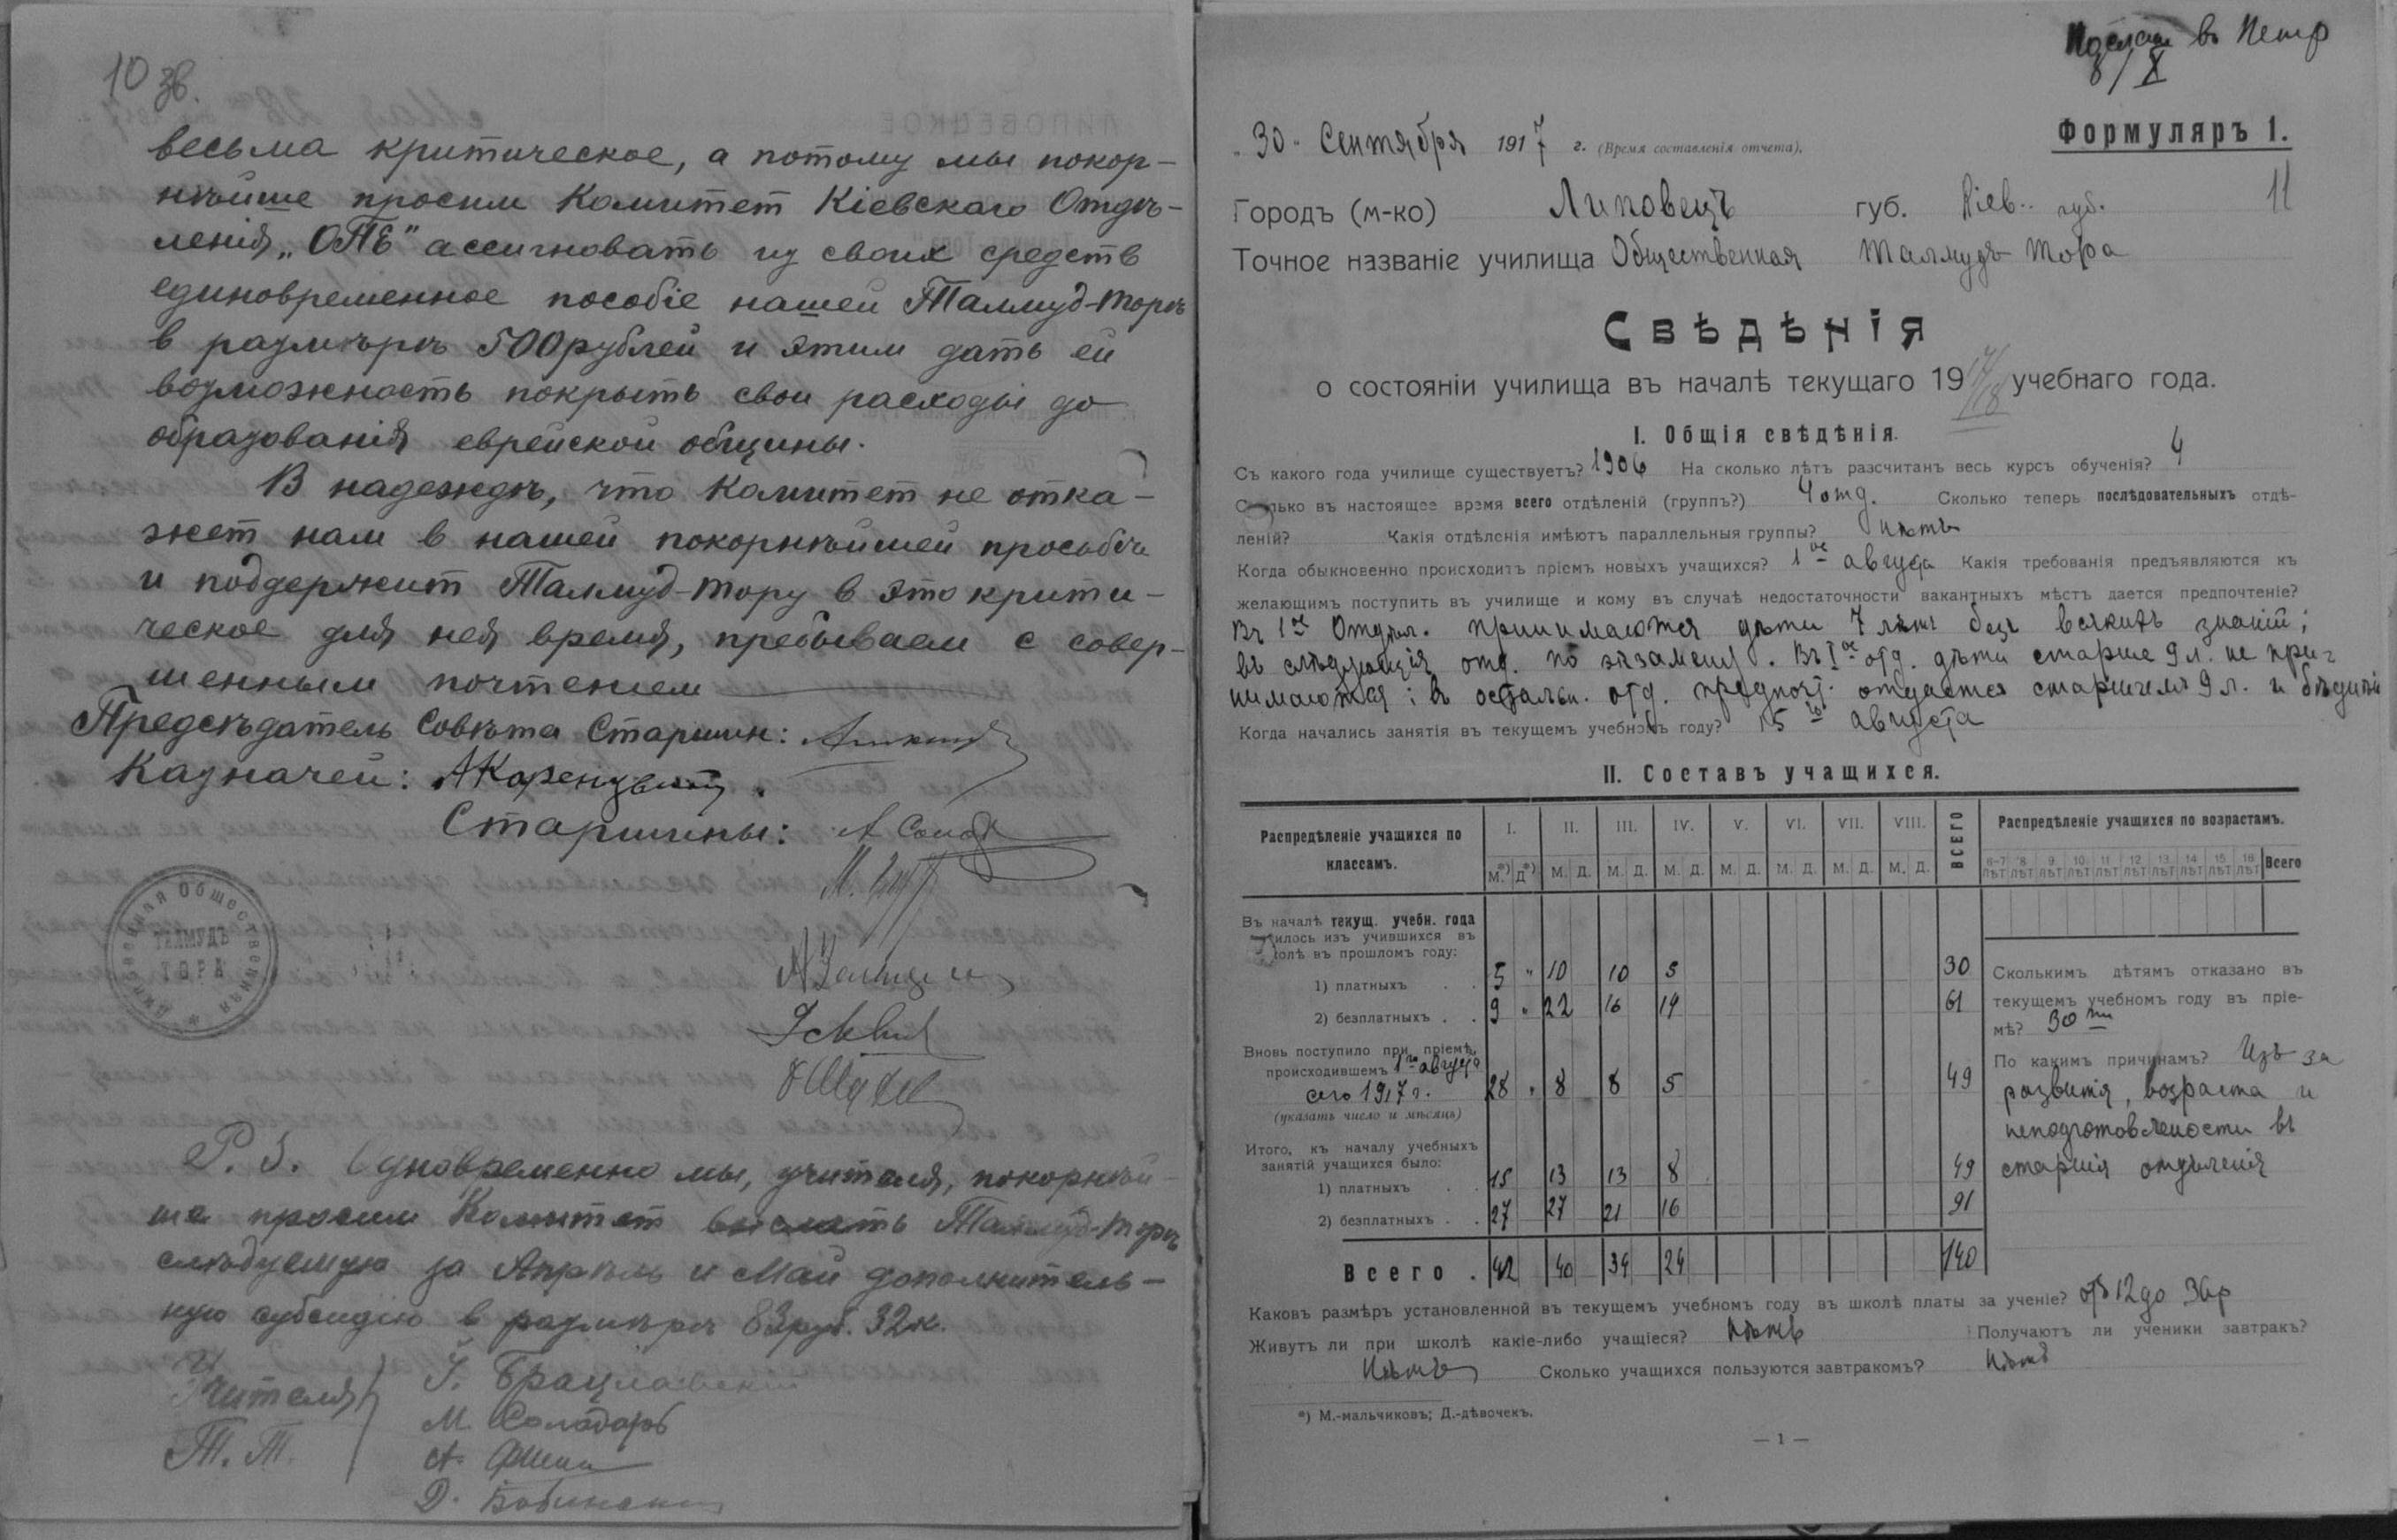 10 зв.
весьма критическое, а потому мы покор-
нѣйше просим Комитет Кіевскаго Отдѣ-
ленія „ОПЕ" ассигновать из своих средств
единовременное пособіе нашей Талмуд-Торѣ
в размѣрѣ 500 рублей и этим дать ей
возможность покрыть свои расходы до
образованія еврейской общины.
В надеждѣ, что Комитет не отка-
жет нам в нашей покорнѣйшей просьбѣ
и поддержит Талмуд-Тору в это крити-
ческое для нея время, пребываем с совер-
шенным почтением
Предсѣдатель Совѣта Старшин:
Казначей:
Старшины:
Общественная
ТАЛМУДЪ
ТОРА
P. S. Одновременно мы, учителя, покорнѣй-
ше просим Комитет выслать Талмуд-Торѣ
слѣдуемую за Апрѣль и Май дополнитель-
ную субсидію в размѣрѣ 83 руб. 32 к.
Учителя
Т. Т.
І. Брацлавскій
М. Солодарь
в Петр
8/X
Формуляръ 1.
„30" Сентября 1917 г. (Время составленія отчета).
11
Городъ (м-ко) Липовецъ губ. Кіев. губ.
Точное названіе училища Общественная Талмудъ Тора
Свѣдѣнія
о состояніи училища въ началѣ текущаго 1917/18 учебнаго года.
I. Общія свѣдѣнія.
Съ какого года училище существуетъ? 1906 На сколько лѣтъ разсчитанъ весь курсъ обученія? 4
Сколько въ настоящее время всего отдѣленій (группъ?) 4 отд. Сколько теперь послѣдовательныхъ отдѣ-
леній? Какія отдѣленія имѣютъ параллельныя группы? нѣтъ
Когда обыкновенно происходитъ пріемъ новыхъ учащихся? 1ое августа Какія требованія предъявляются къ
желающимъ поступить въ училище и кому въ случаѣ недостаточности вакантныхъ мѣстъ дается предпочтеніе?
Въ 1ое Отдѣл. принимаются дѣти 7 лѣтъ безъ всякихъ знаній;
въ слѣдующія отд. по экзамену. Въ Iое отд. дѣти старше 9 л. не при-
нимаются; в остальн. отд. предпочт. отдается старшимъ 9 л. и бѣднымъ
Когда начались занятія въ текущемъ учебномъ году? 15го августа
II. Составъ учащихся.
Распредѣленіе учащихся по классамъ. I. II. III. IV. V. VI. VII. VIII. ВСЕГО Распредѣленіе учащихся по возрастамъ.
М.*) Д.*) М. Д. М. Д. М. Д. М. Д. М. Д. М. Д. М. Д. 6-7 лѣт 8 лѣт 9 лѣт 10 лѣт 11 лѣт 12 лѣт 13 лѣт 14 лѣт 15 лѣт 16 лѣт Всего
Въ началѣ текущ. учебн. года
илось изъ учившихся въ
олѣ въ прошломъ году:
1) платныхъ . . 5 " 10 10 5 30
2) безплатныхъ . . 9 " 22 16 14 61
Вновь поступило при пріемѣ,
происходившемъ 1го августа
сего 1917 г. 28 " 8 8 5 49
(указать число и мѣсяцъ)
Итого, къ началу учебныхъ
занятій учащихся было:
1) платныхъ . . 15 13 13 8 49
2) безплатныхъ . . 27 27 21 16 91
Всего . 42 40 34 24 140
Сколькимъ дѣтямъ отказано въ
текущемъ учебномъ году въ пріе-
мѣ? 30ти
По какимъ причинамъ? Изъ за
развитія, возраста и
неподготовлености въ
старшія отдѣленія
Каковъ размѣръ установленной въ текущемъ учебномъ году въ школѣ платы за ученіе? отъ 12 до 36 р
Живутъ ли при школѣ какіе-либо учащіеся? нѣтъ Получаютъ ли ученики завтракъ?
нѣтъ Сколько учащихся пользуются завтракомъ? нѣтъ
*) М.-мальчиковъ; Д.-дѣвочекъ.
— 1 —